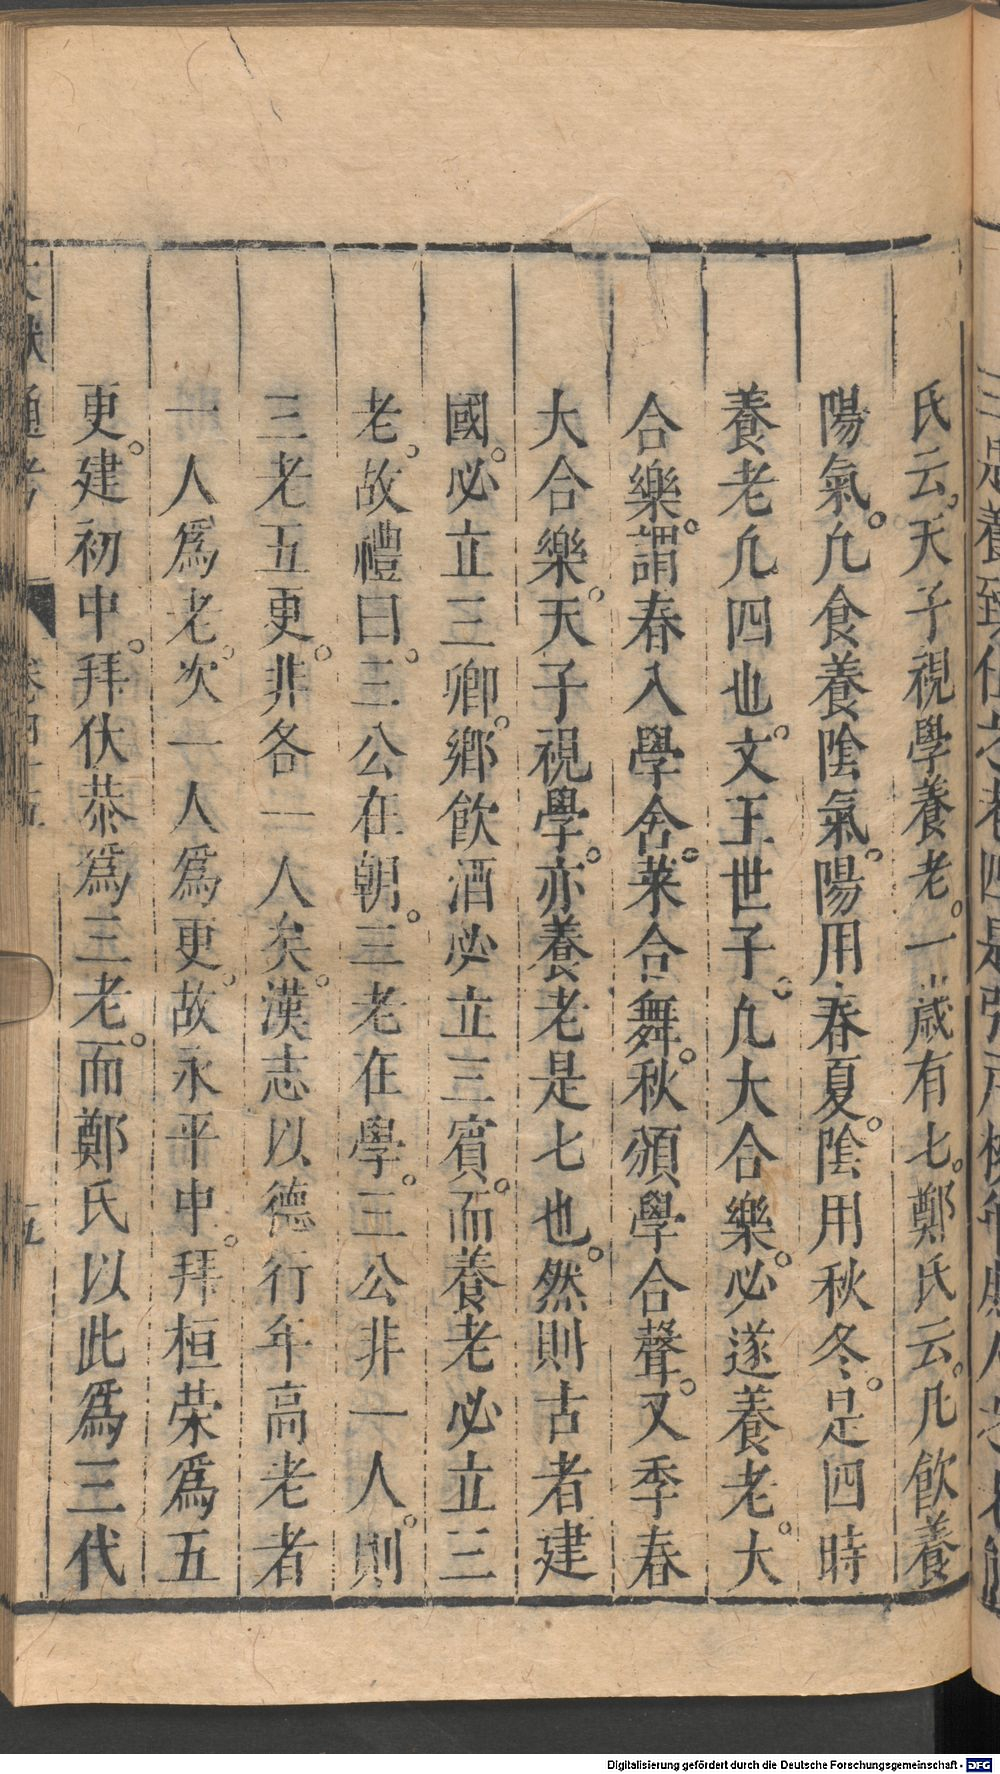 氏云天子視學養老一歲有七鄭氏云凡飲養
陽氣凢食養陰氣陽用春夏陰用秋冬是四時
養老凢四也文王世子凢大合樂必遂養老大
合樂謂春入學舍菜合舞秋頒學合聲又季春
大合樂天子視學亦養老是七也然則古者建
國必立三卿鄉飲酒必立三賓而養老必立三
老故禮曰三公在朝三老在學三公非一人則
三老五更非各一人矣漢志以德行年高老者
一人爲老次一人爲更故永平中拜桓荣爲五
更建初中拜伏恭爲三老而鄭氏以此爲三代
通考 卷四十五 五
Digitalisierung gefördert durch die Deutsche Forschungsgemeinschaft - DFG